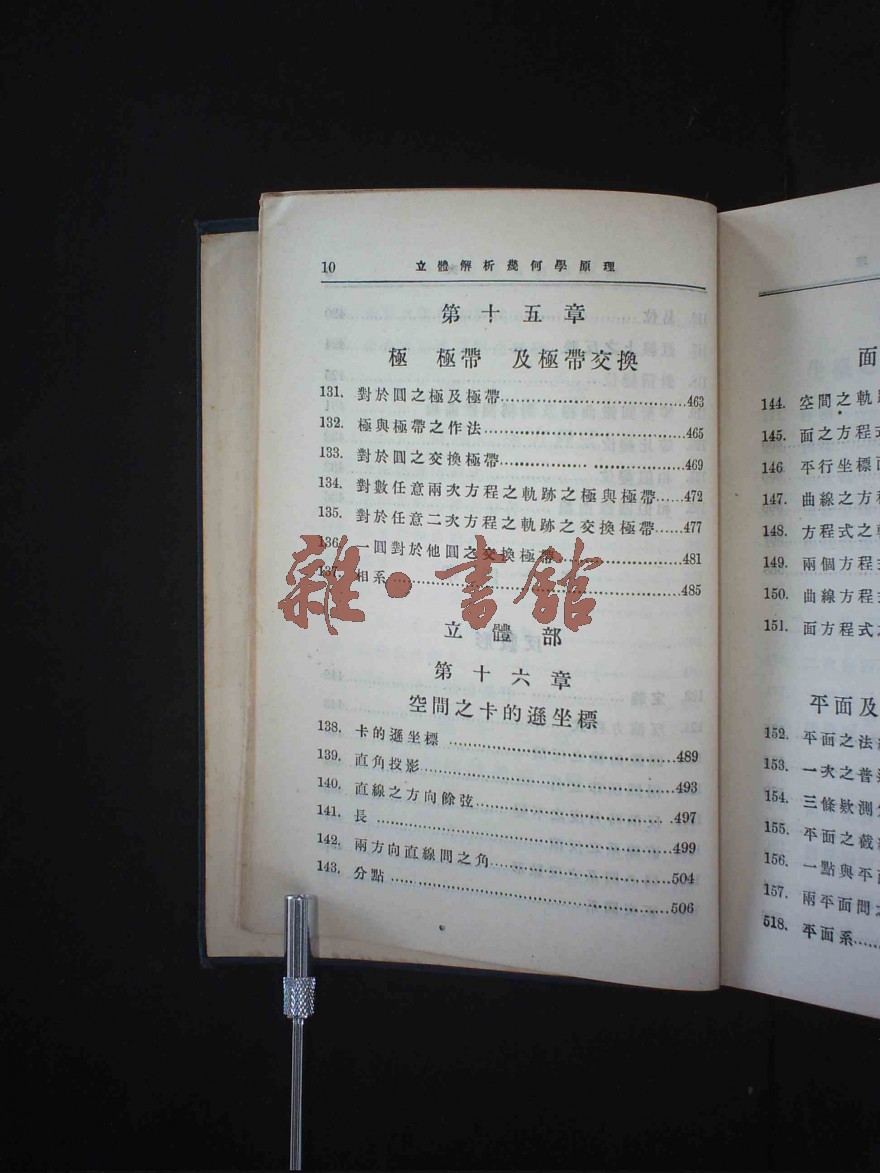 10 立體解析幾何學原理
第十五章
極 極帶 及極帶交換
131. 對於圓之極及極帶........................463
132. 極與極帶之作法........................465
133. 對於圓之交換極帶........................469
134. 對數任意兩次方程之軌跡之極與極帶......472
135. 對於任意二次方程之軌跡之交換極帶......477
136. 一圓對於他圓之交換極帶..................481
137. 相系........................485
雜·書館
立體部
第十六章
空間之卡的遜坐標
138. 卡的遜坐標........................489
139. 直角投影........................493
140. 直線之方向餘弦........................497
141. 長........................499
142. 兩方向直線間之角........................504
143. 分點........................506
面
144. 空間之軌
145. 面之方程式
146. 平行坐標面
147. 曲線之方程
148. 方程式之
149. 兩個方程式
150. 曲線方程式
151. 面方程式之
平面及
152. 平面之法
153. 一次之普
154. 三條欵測
155. 平面之截
156. 一點與平面
157. 兩平面間之
518. 平面系......